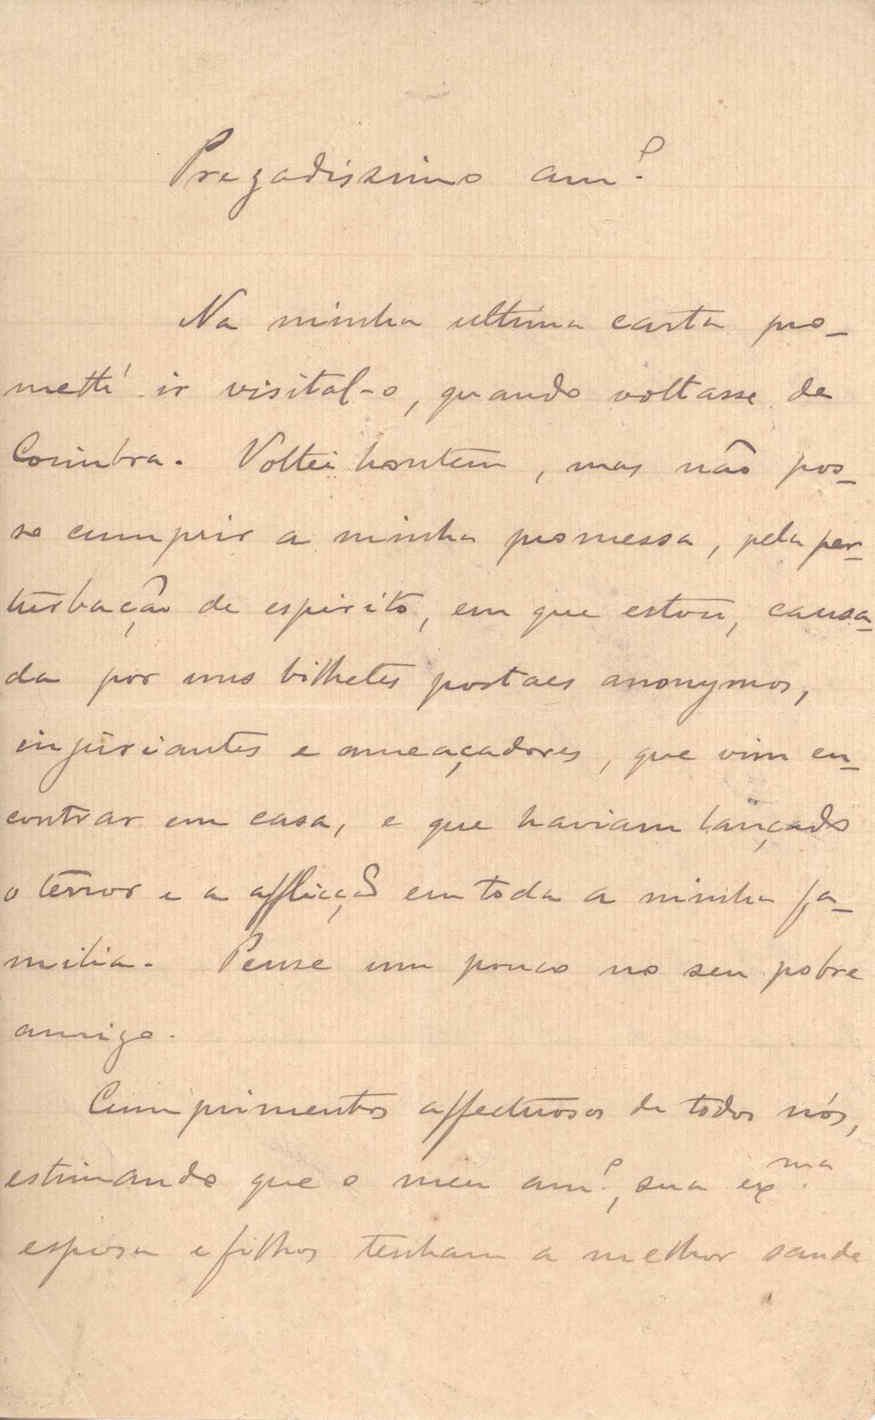 Prezadissimo am.º
Na minha ultima carta pro-
metti ir visital-o, quando voltasse de
Coimbra. Voltei hontem, mas não pos-
so cumprir a minha promessa, pela per-
turbação de espirito, em que estou, causa-
da por uns bilhetes postaes anonymos,
injuriantes e ameaçadores, que vim en-
contrar em casa, e que haviam lançado
o terror e a afflicção em toda a minha fa-
milia. Pense um pouco no seu pobre
amigo.
Cumprimentos affectuosos de todos nós,
estimando que o meu am.º, sua ex.ma
esposa e filhos tenham a melhor saude